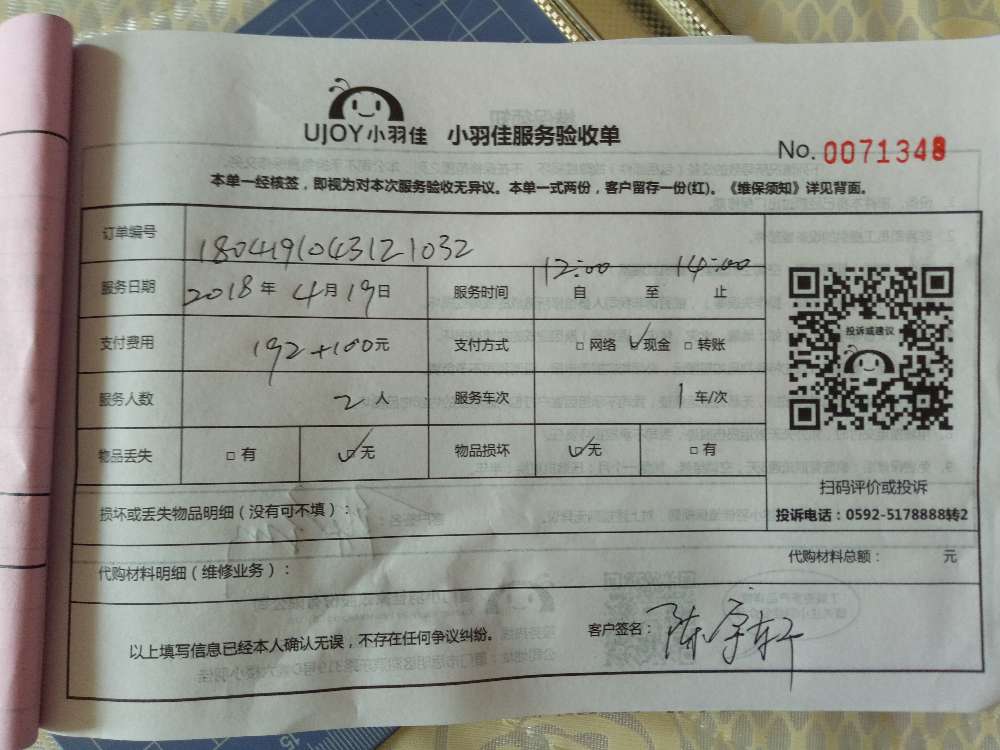 UJOY小羽佳 小羽佳服务验收单
No. 0071348
本单一经核签，即视为对本次服务验收无异议。本单一式两份，客户留存一份(红)。《维保须知》详见背面。
订单编号 180419104312103​2
服务日期 2018年 4月19日 服务时间 12:00 自 至 14:00 止
支付费用 192+100元 支付方式 □网络 ☑现金 □转账
服务人数 2人 服务车次 1车/次
物品丢失 □有 ☑无 物品损坏 ☑无 □有
投诉或建议
扫码评价或投诉
投诉电话：0592-5178888转2
损坏或丢失物品明细（没有可不填）：
代购材料明细（维修业务）： 代购材料总额： 元
以上填写信息已经本人确认无误，不存在任何争议纠纷。 客户签名：陈宇轩